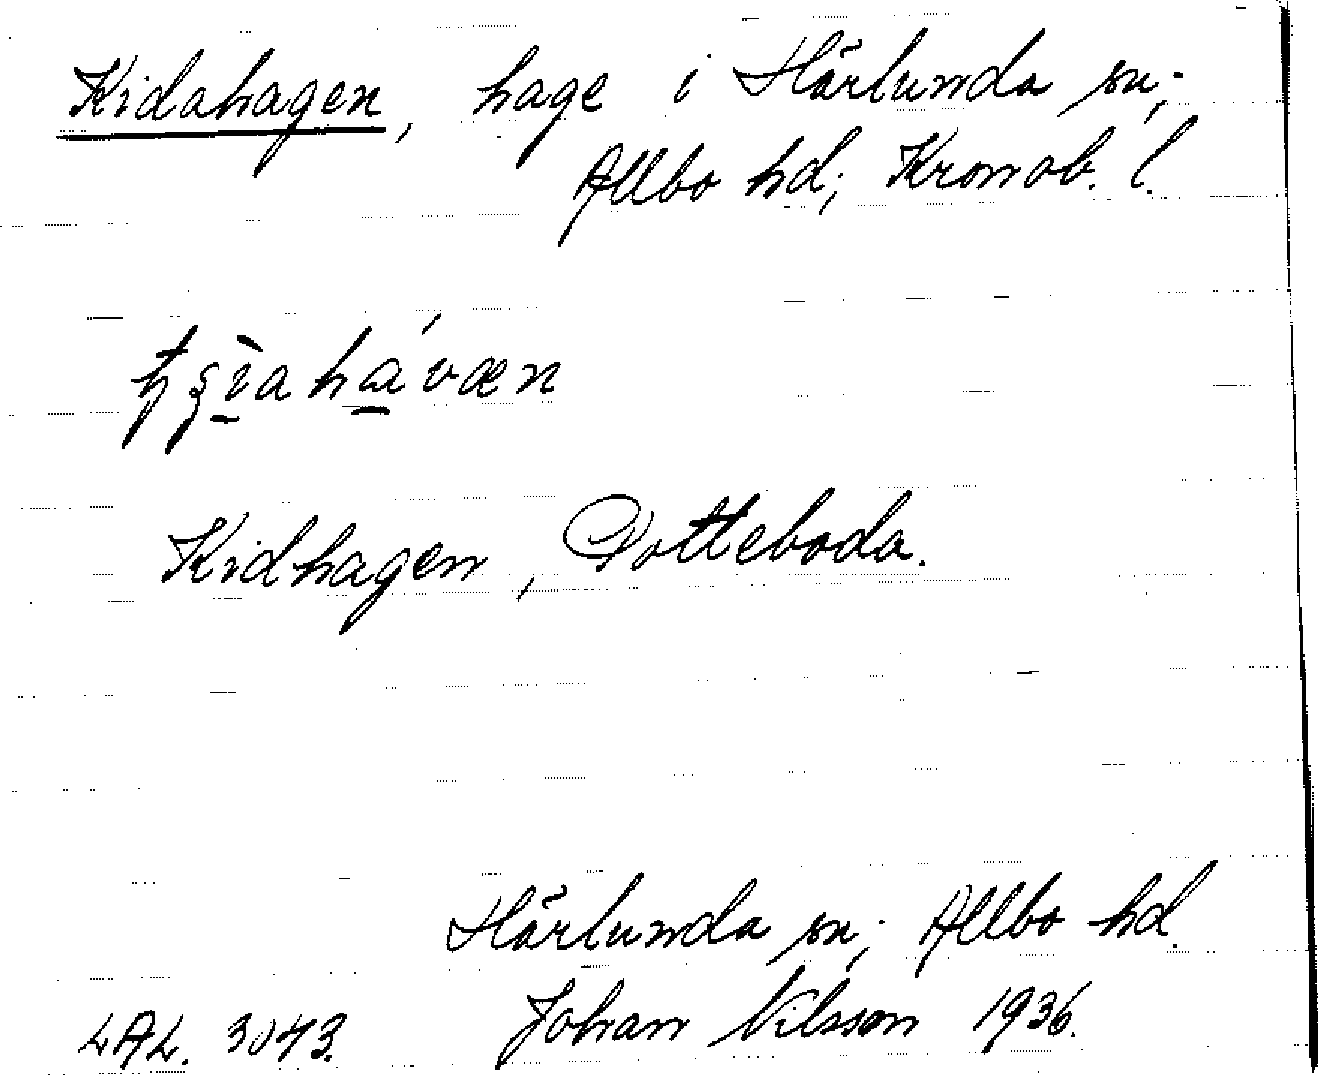 Kidahagen, hage i Härlunda sn;
Allbo hd; Kronob. l.
Kidhagen, Potteboda.
Härlunda sn; Allbo hd.
LAL. 3043. Johan Nilsson 1936.